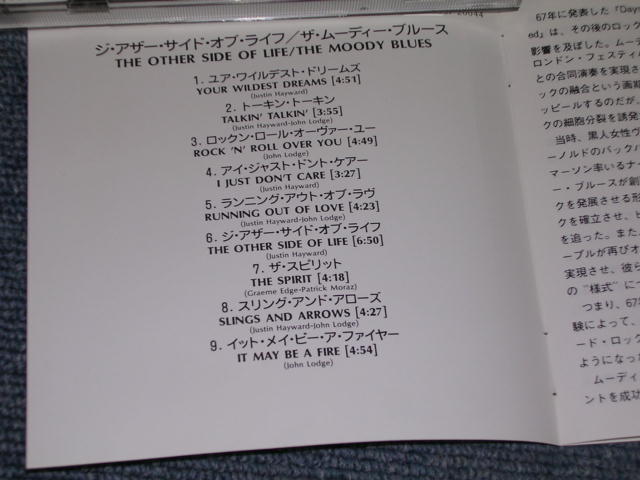 20044
ジ・アザー・サイド・オブ・ライフ/ザ・ムーディー・ブルース
THE OTHER SIDE OF LIFE/THE MOODY BLUES
1. ユア・ワイルデスト・ドリームズ
YOUR WILDEST DREAMS [4:51]
(Justin Hayward)
2. トーキン・トーキン
TALKIN' TALKIN' [3:55]
(Justin Hayward-John Lodge)
3. ロックン・ロール・オーヴァー・ユー
ROCK 'N' ROLL OVER YOU [4:49]
(John Lodge)
4. アイ・ジャスト・ドント・ケアー
I JUST DON'T CARE [3:27]
(Justin Hayward)
5. ランニング・アウト・オブ・ラヴ
RUNNING OUT OF LOVE [4:23]
(Justin Hayward-John Lodge)
6. ジ・アザー・サイド・オブ・ライフ
THE OTHER SIDE OF LIFE [6:50]
(Justin Hayward)
7. ザ・スピリット
THE SPIRIT [4:18]
(Graeme Edge-Patrick Moraz)
8. スリング・アンド・アローズ
SLINGS AND ARROWS [4:27]
(Justin Hayward-John Lodge)
9. イット・メイ・ビー・ア・ファイヤー
IT MAY BE A FIRE [4:54]
(John Lodge)
67年に発表した『Days
ed』は、その後のロック
影響を及ぼした。ムーデ
ロンドン・フェスティバ
との合同演奏を実現さ
ックの融合という画期
ッピールするのだが、
クの細胞分裂を誘発
当時、黒人女性ヴ
ーノルドのバックバ
マーソン率いるナー
ー・ブルースが創
クを発展させる形
クを確立させ、
を追った。また、
ープルが再びオ
実現させ、彼ら
の“様式”に
つまり、67
験によって、
ード・ロック
ようになった
ムーディ
ントを成功